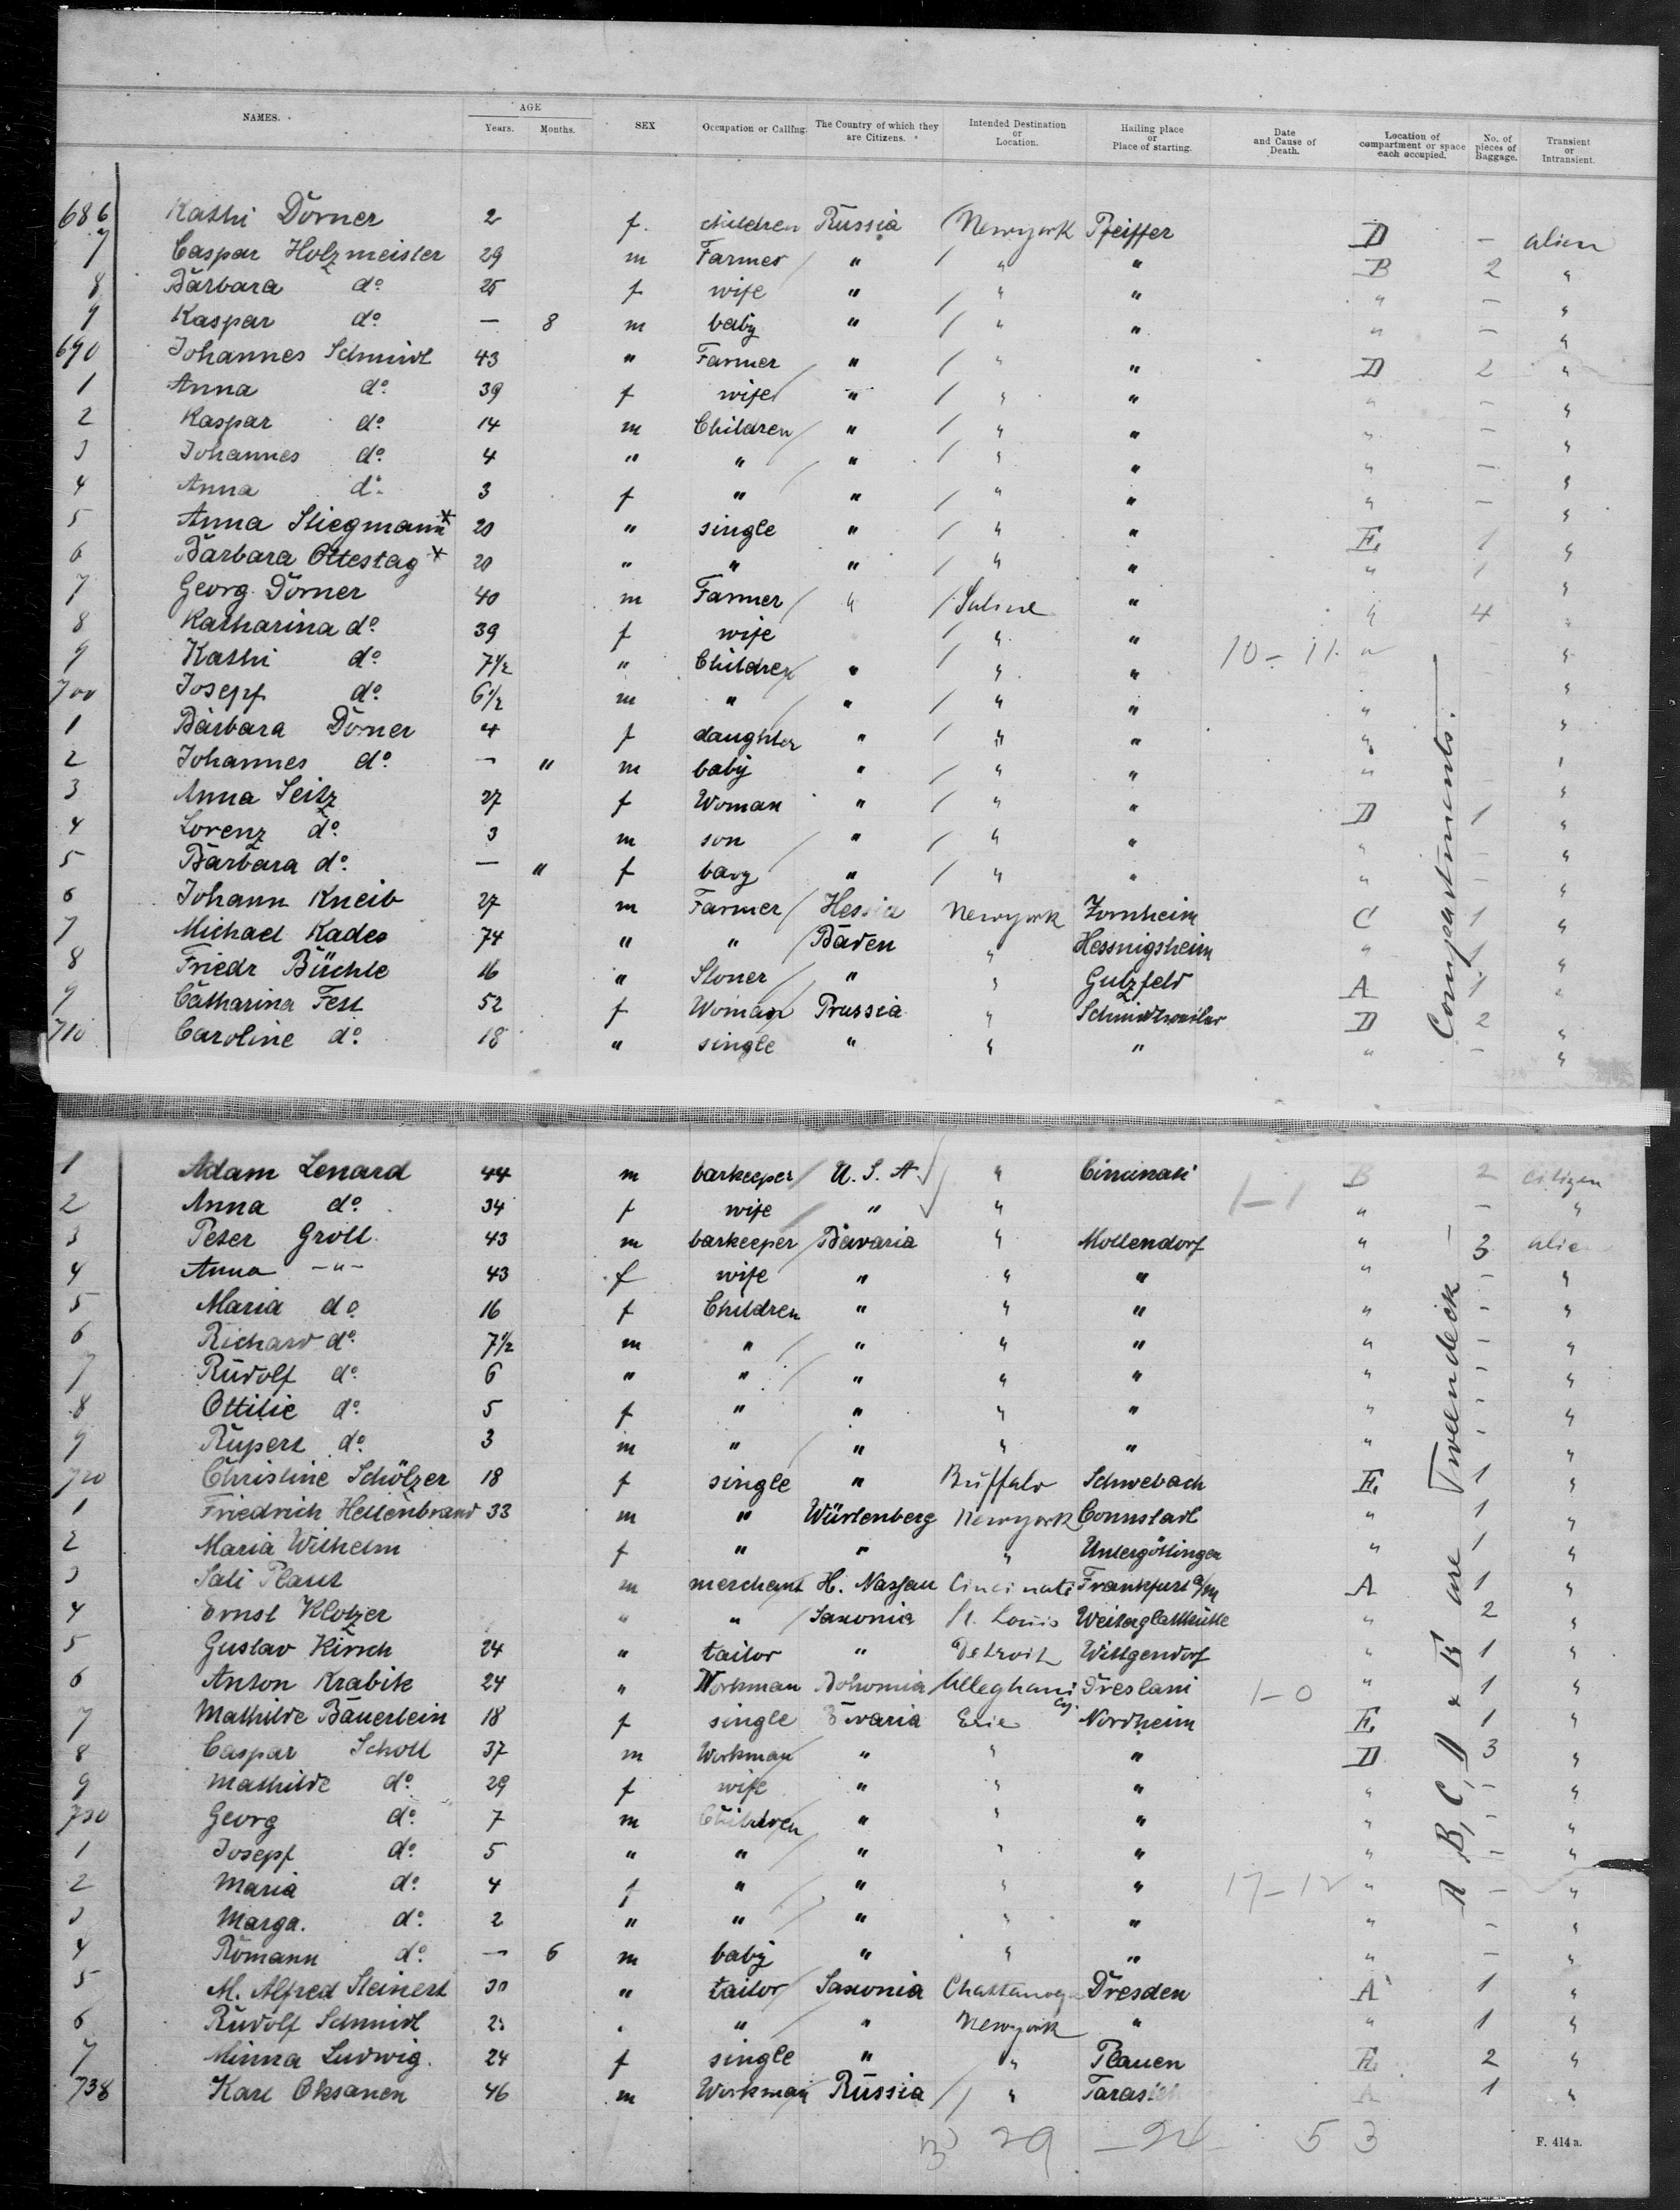 NAMES. AGE Years. Months. SEX Occupation or Calling. The Country of which they are Citizens. Intended Destination or Location. Hailing place or Place of starting. Date and Cause of Death. Location of compartment or space each occupied. No. of pieces of Baggage. Transient or Intransient.
686 Kathi Dorner 2 f. children Russia Newyork Pfeiffer D – alien
7 Caspar Holzmeister 29 m Farmer " " " B 2 "
8 Barbara do 25 f wife " " " " – "
9 Kaspar do — 8 m baby " " " " – "
690 Johannes Schmidt 43 " Farmer " " " D 2 "
1 Anna do 39 f wife " " " " – "
2 Kaspar do 14 m Children " " " " – "
3 Johannes do 4 " " " " " " – "
4 Anna do 3 f " " " " " – "
5 Anna Stiegmann * 20 " single " " " E. 1 "
6 Barbara Ottestag * 20 " " " " " " 1 "
7 Georg Dorner 40 m Farmer " " " 4 "
8 Katharina do 39 f wife " " 10 – 11 " "
9 Kathi do 7 1/2 " Children " " " "
700 Josepf do 6 1/2 m " " " " " "
1 Barbara Dorner 4 f daughter " " " " "
2 Johannes do — " m baby " " " " "
3 Anna Seitz 27 f Woman " " " D 1 "
4 Lorenz do 3 m son " " " " – "
5 Barbara do — " f baby " " " " – "
6 Johann Kneib 27 m Farmer Hessia Newyork Zornheim C 1 "
7 Michael Kades 74 " " Baden " Hessnigsheim " 1 "
8 Friedr Büchle 16 " Stoner " " Gutzfeld A 1 "
9 Catharina Fest 52 f Woman Prussia " Schmidtweiler D 2 "
710 Caroline do 18 " single " " " " – "
1 Adam Lenard 44 m barkeeper U. S. A " Cincinati B 2 citizen
2 Anna do 34 f wife " " 1–1 " – "
3 Peter Groll 43 m barkeeper Bavaria " Mollendorf " 3 alien
4 Anna –"– 43 f wife " " " " – "
5 Maria do 16 f Children " " " " – "
6 Richard do 7 1/2 m " " " " " – "
7 Rudolf do 6 " " " " " " – "
8 Ottilie do 5 f " " " " " – "
9 Rupert do 3 m " " " " " – "
720 Christine Schölzer 18 f single " Buffalo Schwebach E. 1 "
1 Friedrich Hellenbrand 33 m " Würtenberg Newyork Connstadt " 1 "
2 Maria Wilhelm f " " " Untergöttingen " 1 "
3 Sali Plaut m merchant H. Nassau Cincinati Frankfurt a/m A 1 "
4 Ernst Klotzer " " Saxonia St. Louis Weiterglashütte " 2 "
5 Gustav Kirsch 24 " tailor " Detroit Wittgendorf " 1 "
6 Anton Krabik 24 " Workman Bohomia Alleghani Cy. Dreslani 1–0 " 1 "
7 Mathilde Bauerlein 18 f single Bavaria Erie Nordheim E. 1 "
8 Caspar Scholl 37 m Workman " " " D 3 "
9 Mathilde do 29 f wife " " " " – "
730 Georg do 7 m Children " " " " – "
1 Josepf do 5 " " " " " " – "
2 Maria do 4 f " " " " 17–12 " – "
3 Marga. do 2 " " " " " " – "
4 Romann do — 6 m baby " " " " – "
5 M. Alfred Steinert 30 " tailor Saxonia Chattanoga Dresden A 1 "
6 Rudolf Schmidt " " " Newyork " " 1 "
7 Minna Ludwig. 24 f single " " Plauen E. 2 "
738 Karl Oksanen 46 m Workman Russia " A 1 "
29 – 24 53
F. 414 a.
A, B, C, D & E are Tweendeck Compartments.